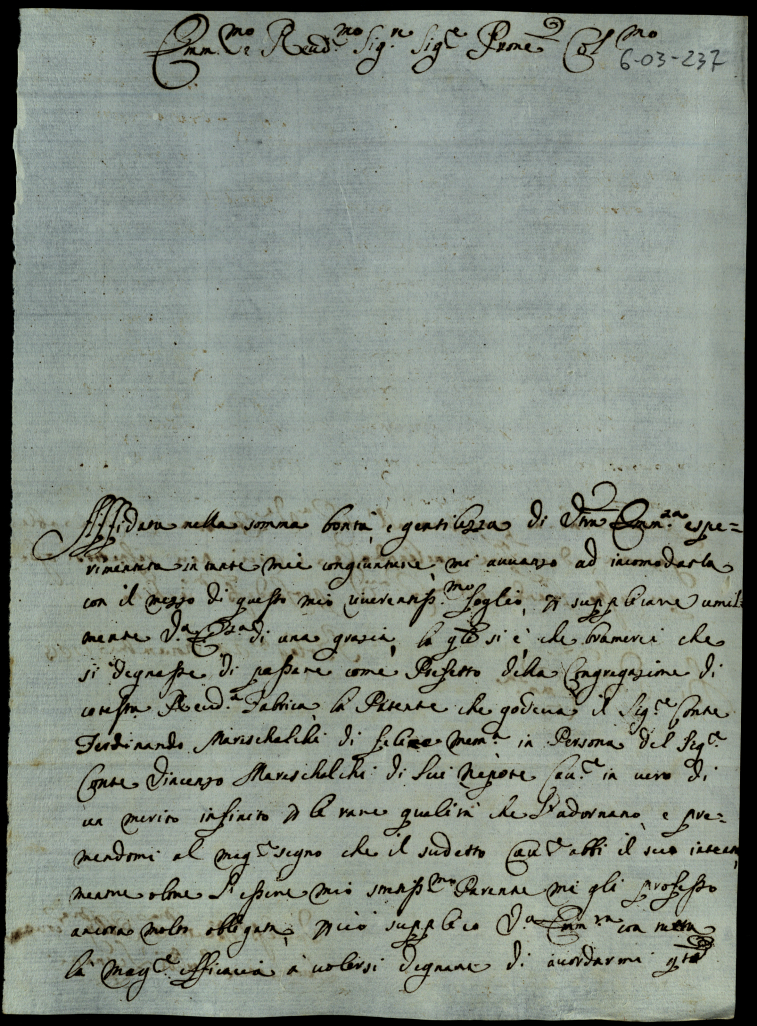 Emm.mo e Reud.mo Sig.re Sig.e Prone Col.mo
6-03-237
Affidata nella somma bontà, e gentilezza di Vra Emm.za espe=
rimentata in tante mie congiunture, mi auuanzo ad incomodarla
con il mezzo di questo mio riuerentiss.mo foglio, p supplicare umil
mente V.a Em.za di una grazia, la qle si è, che bramerei che
si degnasse di passare come Prefetto della Congregazione di
cotesta Reud.a Fabrica, la Patente che godeua il Sig.e Conte
Ferdinando Marischalchi di felice mem.a in Persona del Sig.e
Conte Vincenzo Marischalchi di Lui Nepote Cau.e in uero di
un merito infinito p le rare qualità che l'adornano, e pre=
mendomi al mag.e segno che il sudetto Cau.e abbi il suo intento,
mentre oltre l'essere mio strettiss.mo Parente me gli professo
ancora molto obligata, p ciò supplico V.a Emm.za con tutta
la mag.e efficacia à uolersi degnare di accordarmi qta